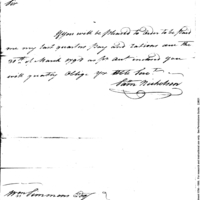 Sir
If you will be pleased to order to be paid
me my last quarters pay and rations due the
31st of March 1798 as per act inclosed you
will greatly oblige yr Hble Servt
Saml Nicholson
Wm Simmons Esqr